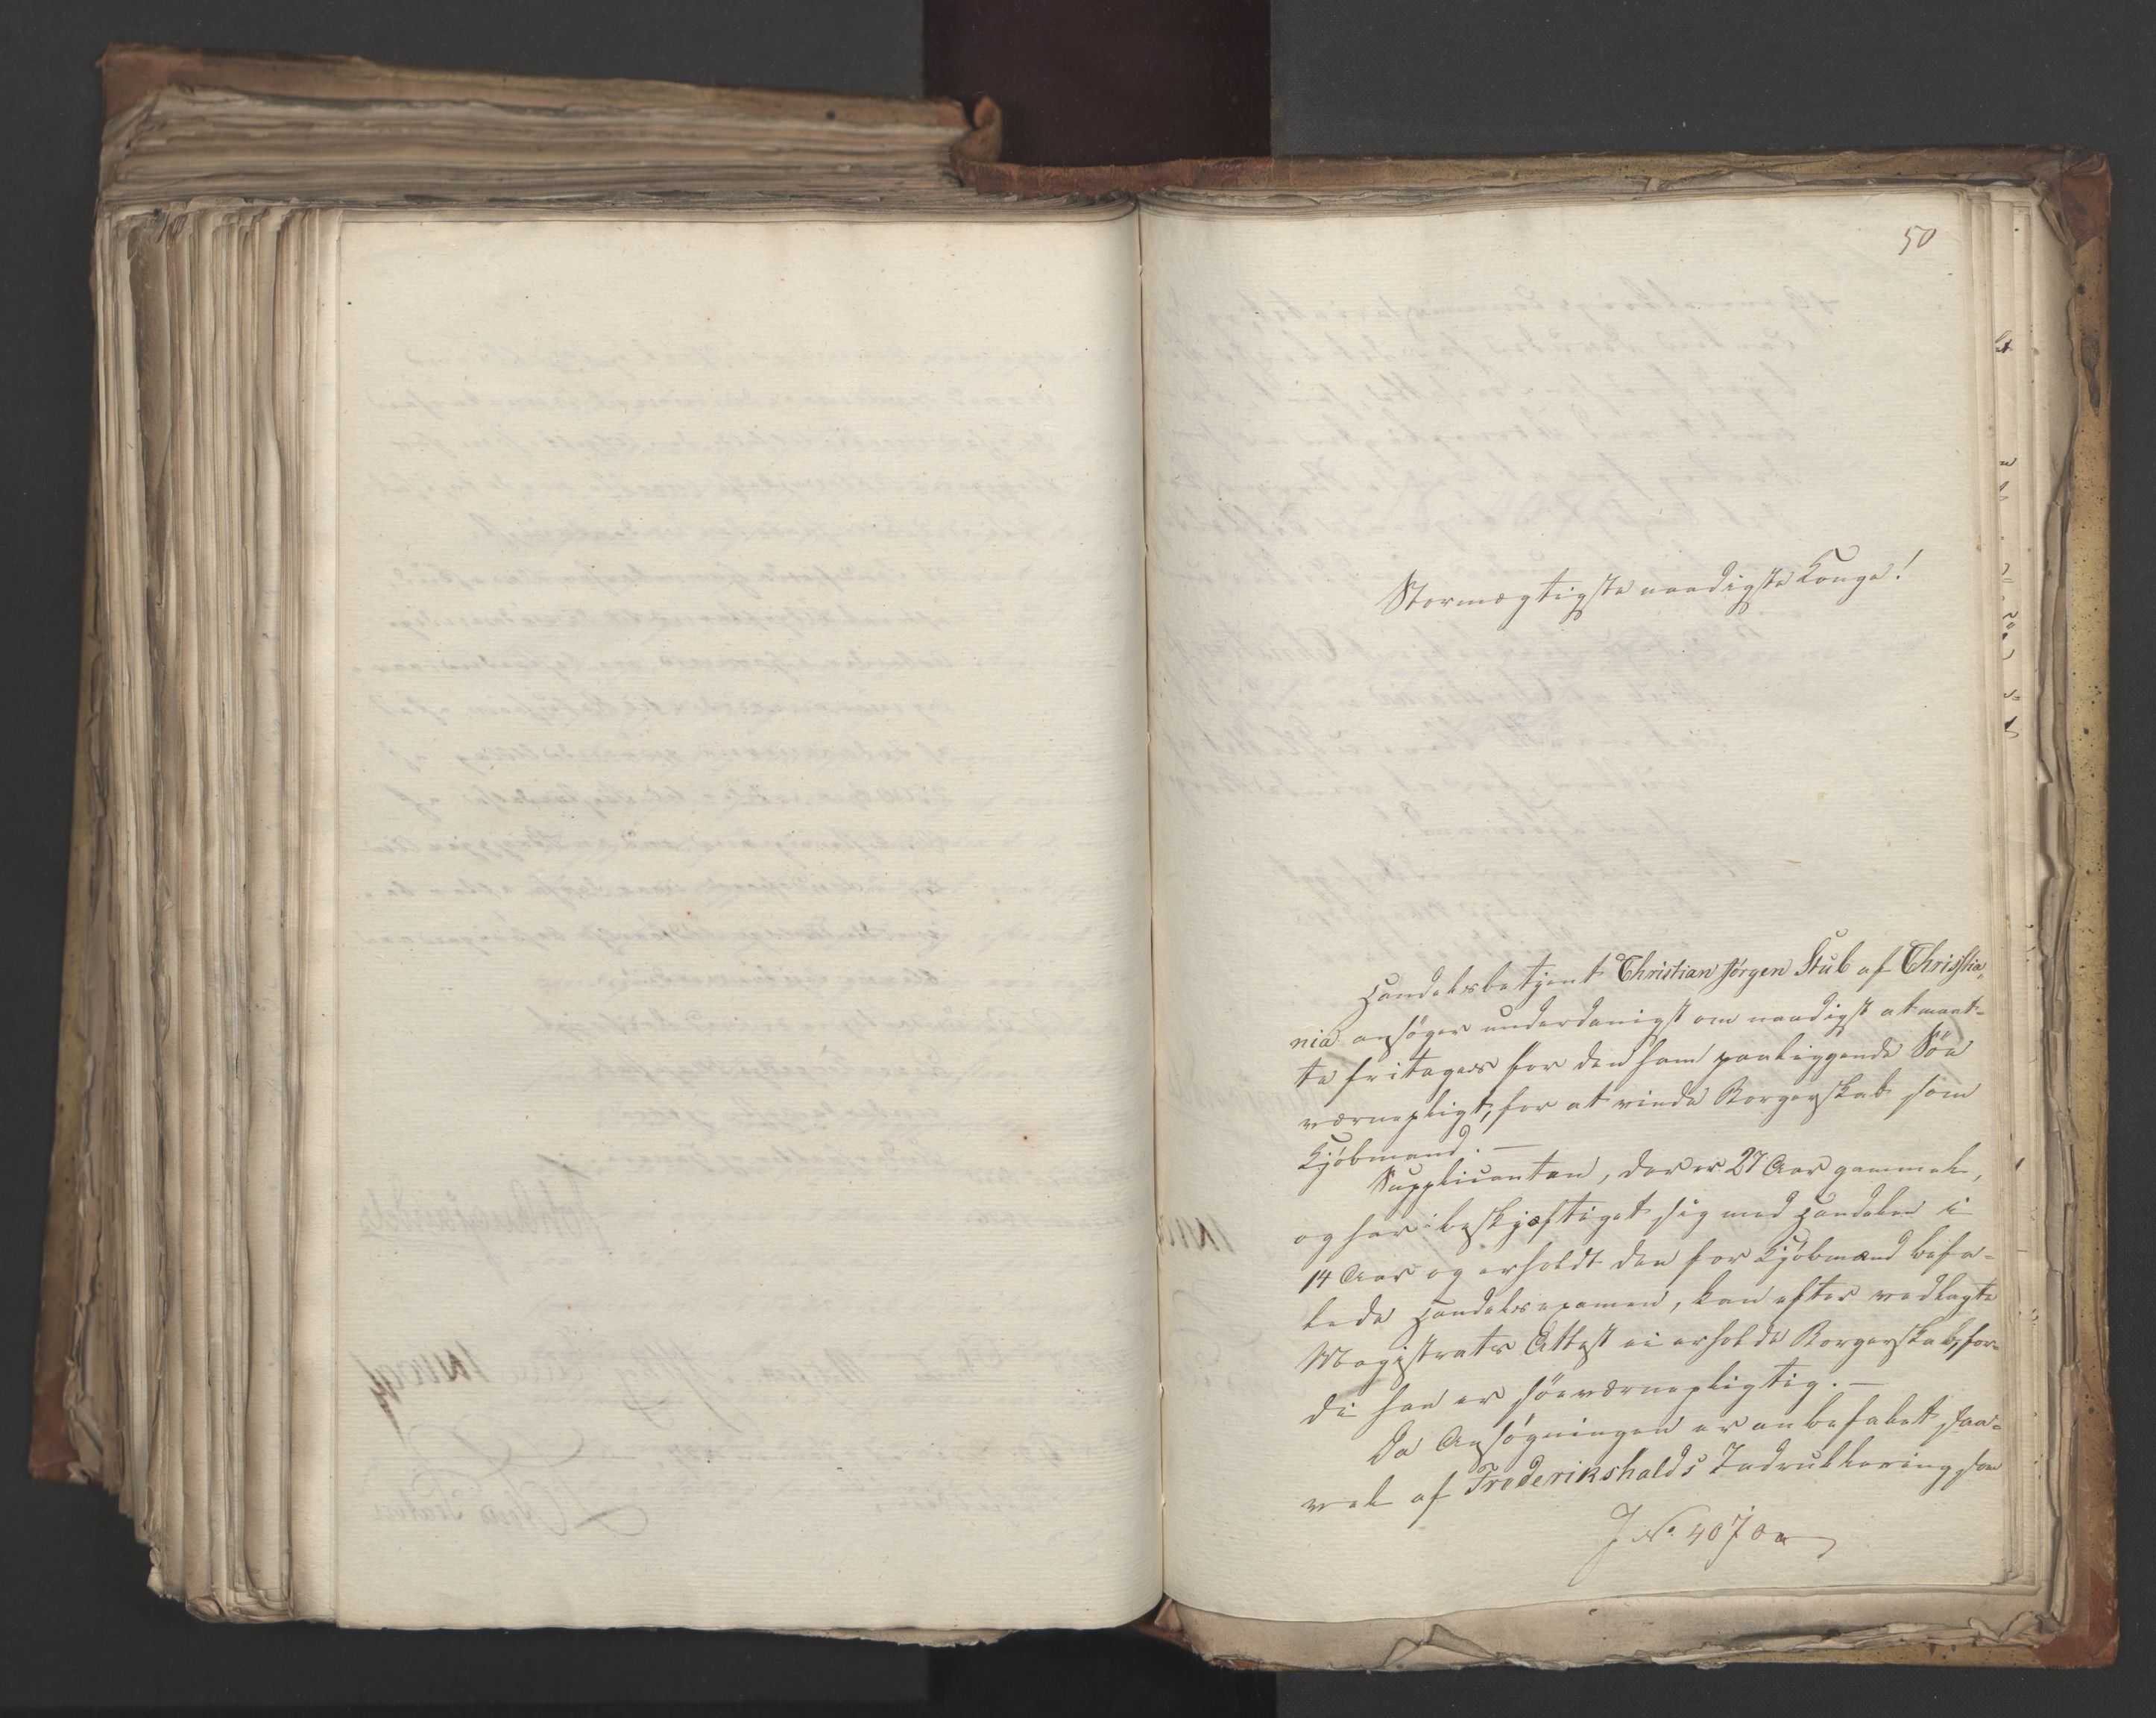 50
Stormægtigste naadigste Konge!
Handelsbetjent Christian Jørgen Stub af Christia„
nia ansøger underdanigst om naadigst at maat-
te fritages for den ham paaliggende Søe
værnepligt, for at vinde Borgerskab som
Kjøbmand. —
Supplicanten, der er 27 Aar gammel,
og har beskjæftiget sig med Handelen i
14 Aar og erholdt den for Kjøbmænd befa-
lede Handelsexamen, kan efter vedlagte
Magistrats Attest ei erholde Borgerskab, for-
di han er søeværnepligtig. —
Da Ansøgningen er anbefalet saa-
vel af Frederikshalds Indrullering som
J No. 4070a